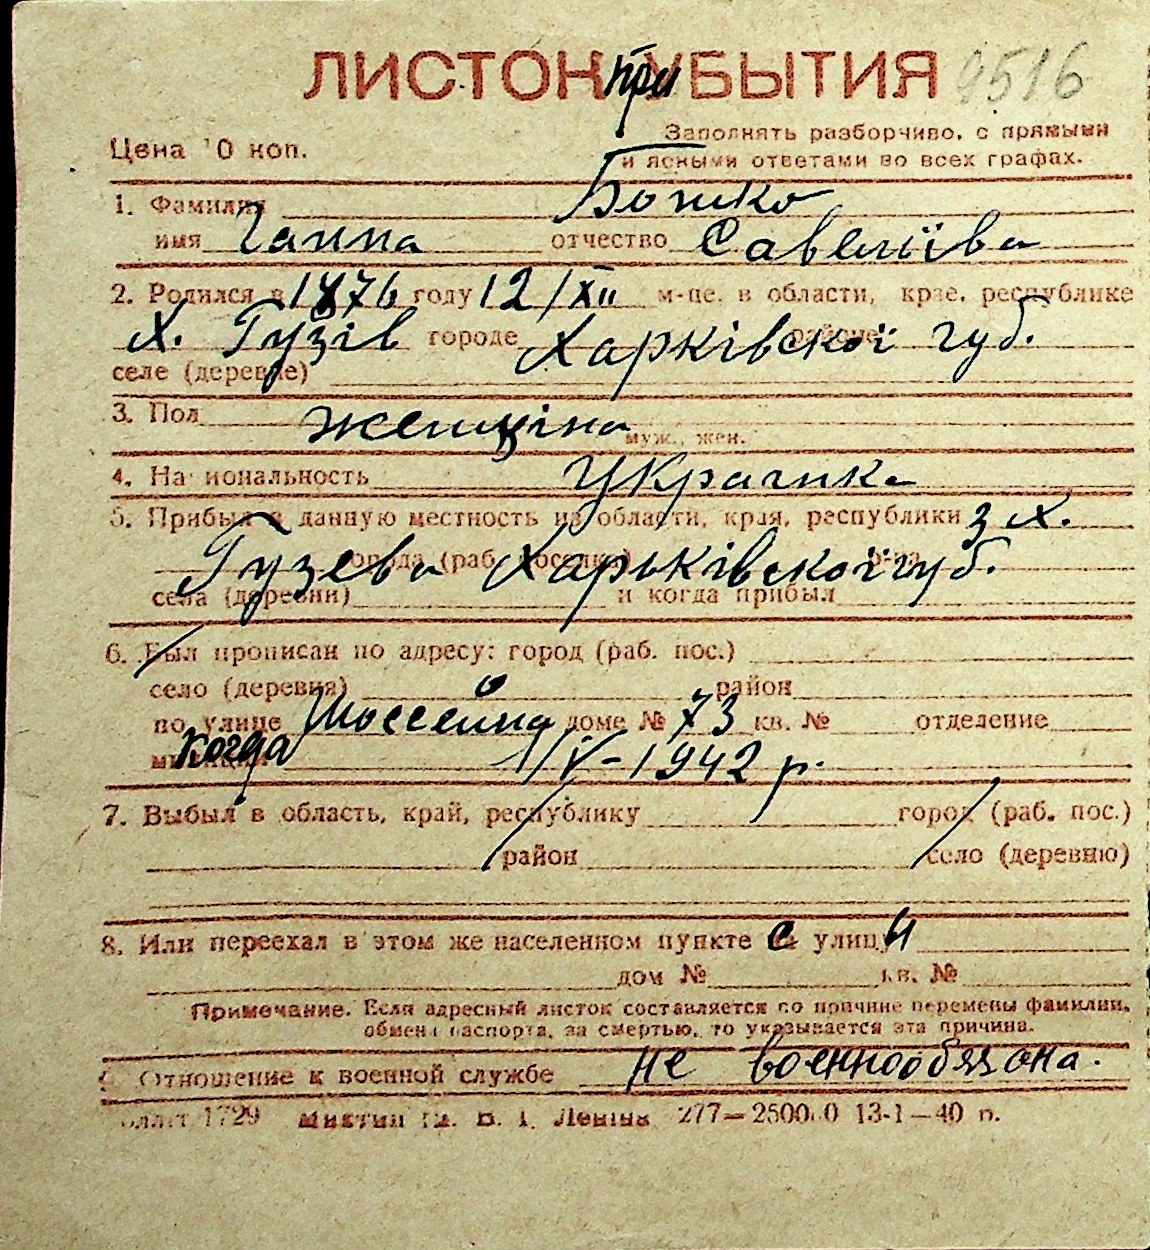 ЛИСТОК при УБЫТИЯ 9516
Цена 10 коп. Заполнять разборчиво, с прямыми
и ясными ответами во всех графах.
1. Фамилия Божко
имя Ганна отчество Савеліїва
2. Родился в 1876 году 12/XII м-це. в области, крае, республике
х. Гузів городе Харківскої губ. районе
селе (деревне)
3. Пол женщіна
муж., жен.
4. Национальность Украинка
5. Прибыл в данную местность из области, края, республики з х.
Гузева города (раб. поселка) Харьківскої губ. р-на
села (деревни) и когда прибыл
6. Был прописан по адресу: город (раб. пос.)
село (деревня) район
по улице Шоссейна доме № 73 кв. № отделение
милиции когда 1/V-1942 р.
7. Выбыл в область, край, республику город (раб. пос.)
район село (деревню)
8. Или переехал в этом же населенном пункте с улицы
дом № кв. №
Примечание. Если адресный листок составляется по причине перемены фамилии,
обмена паспорта, за смертью, то указывается эта причина.
9. Отношение к военной службе не военнообязана.
1729 Ленина 277—250000 13-1—40 п.